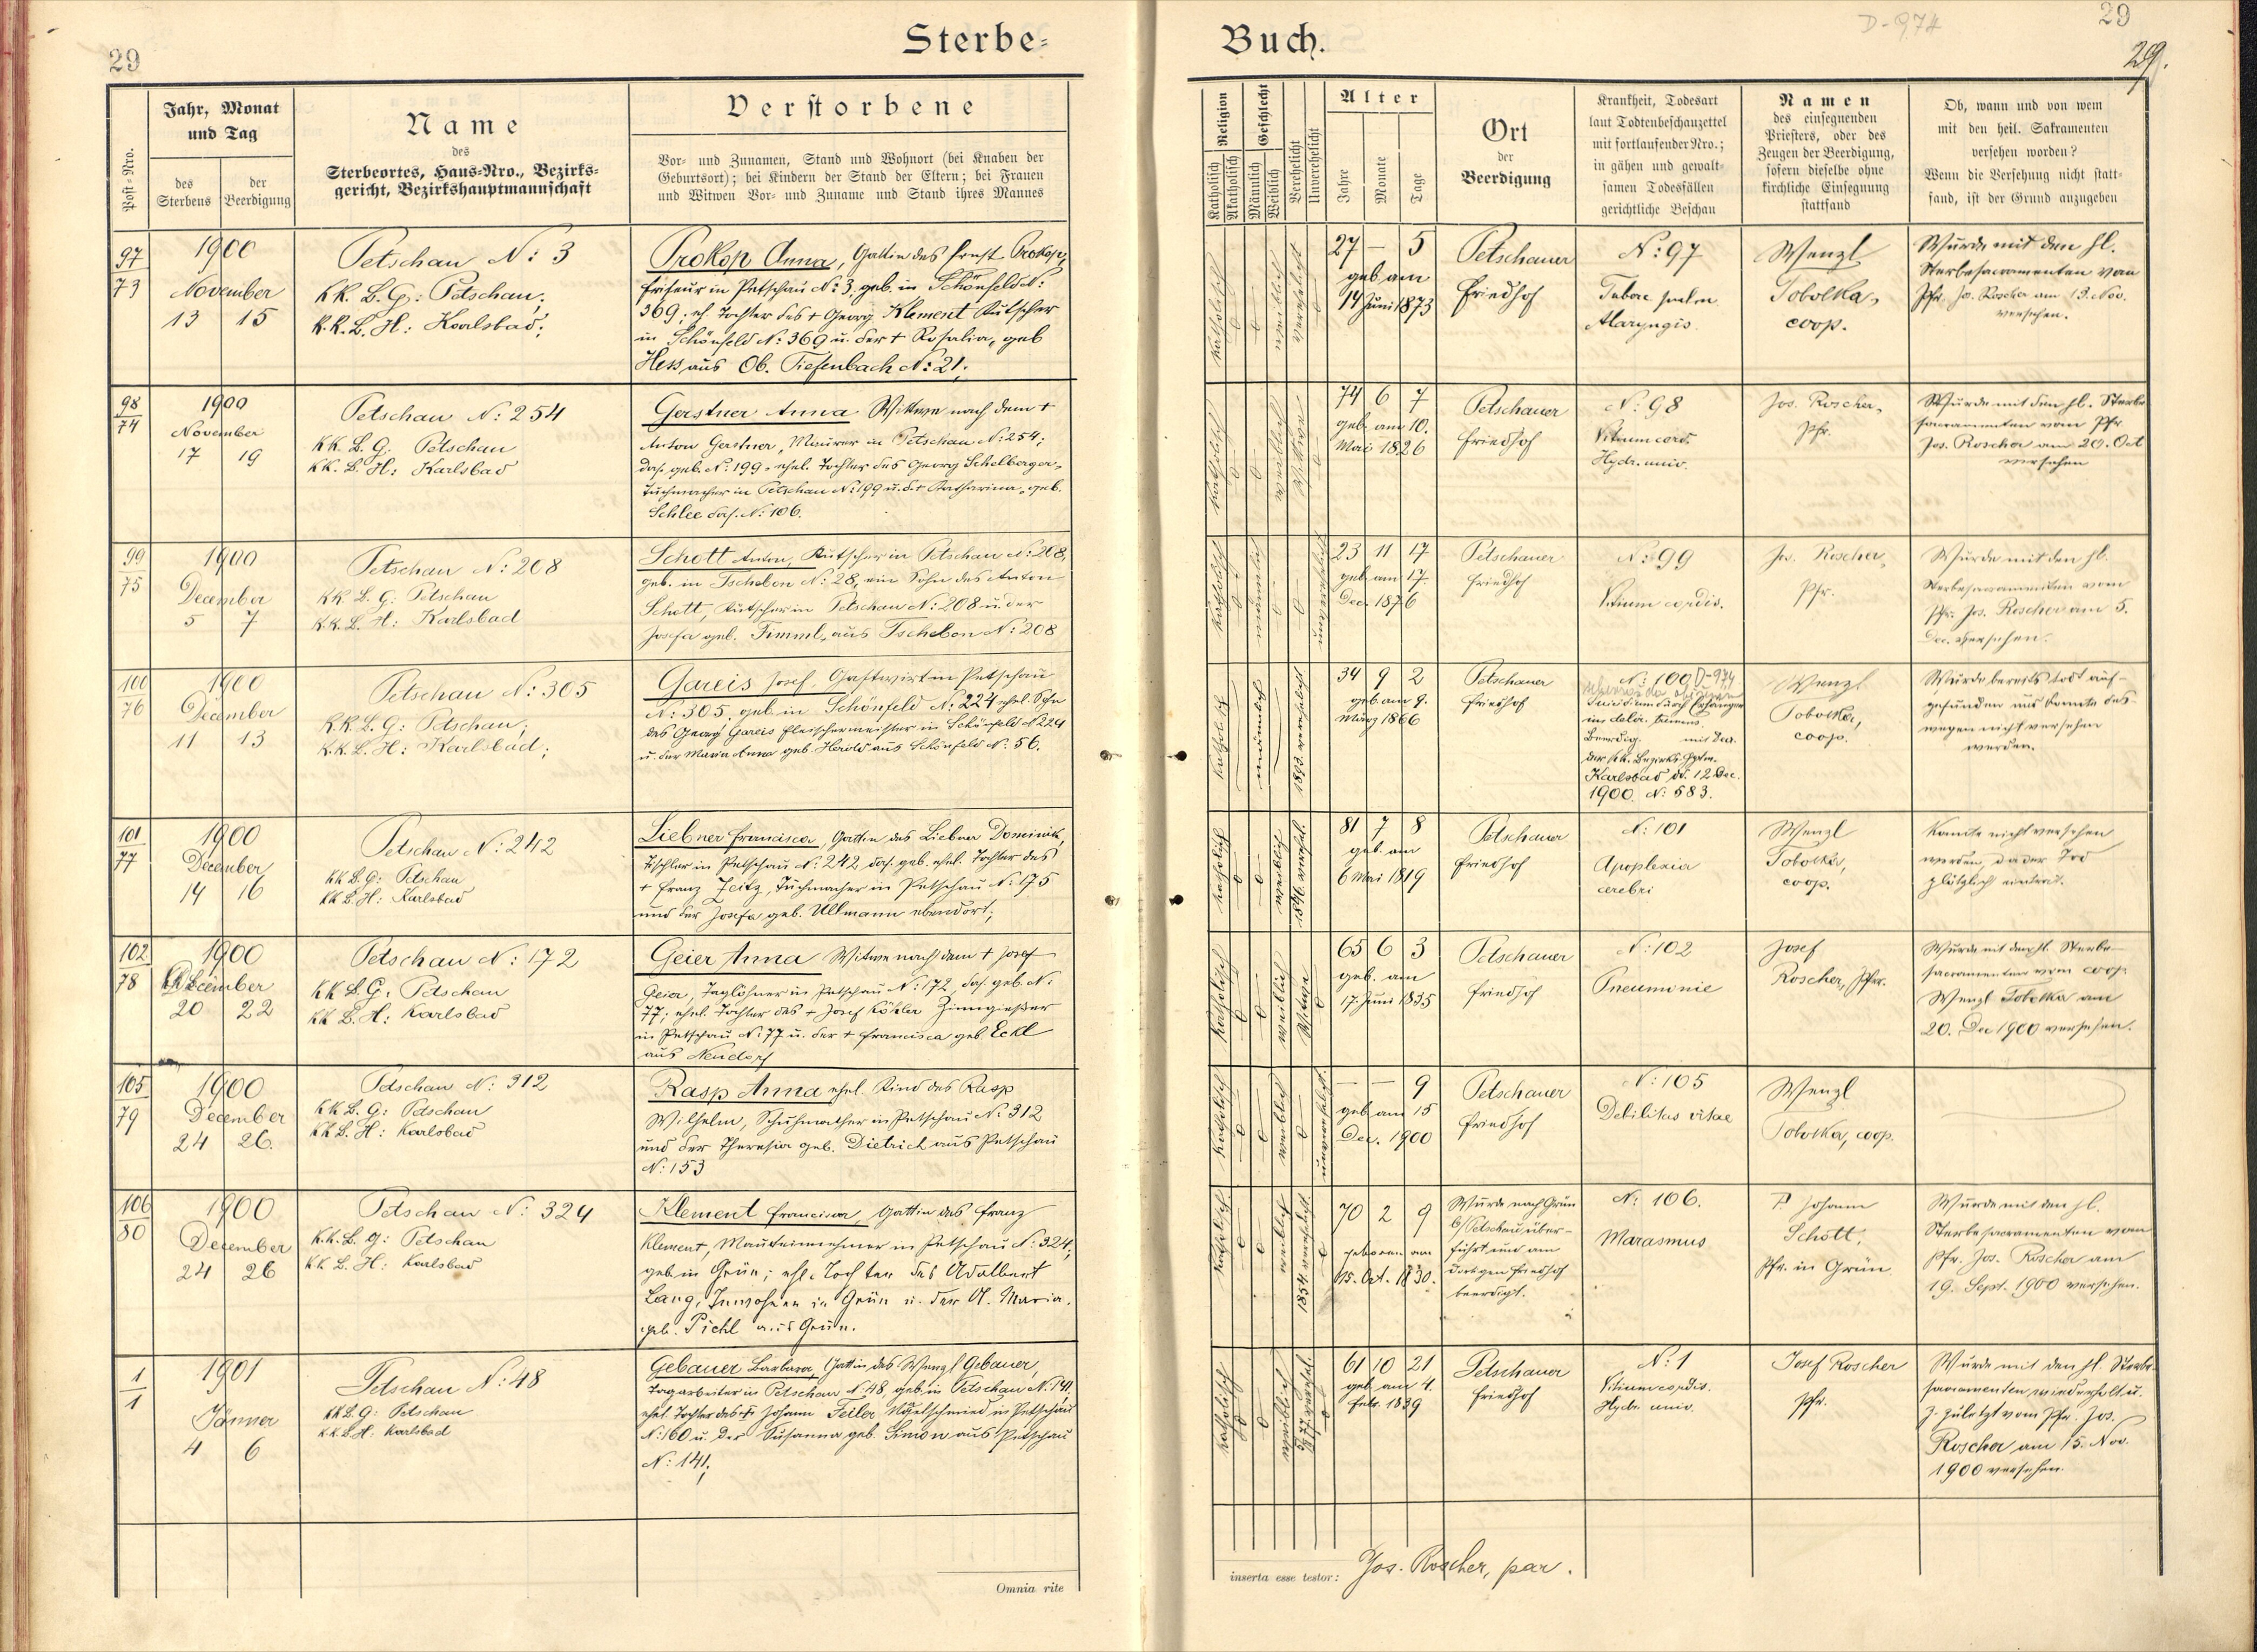 29
Sterbe=
Post=Nro.
Jahr, Monat
und Tag
des
Sterbens
der
Beerdigung
Name
des
Sterbeortes, Haus=Nro., Bezirks=
gericht, Bezirkshauptmannschaft
Verstorbene
Vor= und Zunamen, Stand und Wohnort (bei Knaben der
Geburtsort); bei Kindern der Stand der Eltern; bei Frauen
und Witwen Vor= und Zuname und Stand ihres Mannes
97
73
1900
November
13 15
Petschau N: 3
KK. B. G: Petschau;
K.K. B. H: Karlsbad;
Prokop Anna, Gattin des Ernst Prokop,
Friseur in Petschau N: 3, geb. in Schönfeld N:
369; eh. Tochter des + Georg Klement Kutscher
in Schönfeld N: 369 u. der + Rosalia, geb
Hess aus Ob. Tiefenbach N: 21;
98
74
1900
November
17 19
Petschau N: 254
KK. B. G. Petschau
KK. B. H: Karlsbad
Gerstner Anna Witwe nach dem +
Anton Gerstner, Maurer in Petschau N: 254;
das. geb. N: 199, ehel. Tochter des Georg Schelberger,
Tuchmacher in Petschau N: 199 u. d. + Katharina, geb.
Schlee das. N: 106.
99
75
1900
December
5 7
Petschau N: 208
KK. B. G: Petschau
K.K. B. H: Karlsbad
Schott Anton, Kutscher in Petschau N: 208,
geb. in Tschebon N: 28, ein Sohn des Anton
Schott, Kutscher in Petschau N: 208 u. der
Josefa geb. Timml, aus Tschebon N: 208
100
76
1900
December
11 13
Petschau N: 305
K.K. B. G: Petschau;
K.K. B. H: Karlsbad;
Gareis Josef, Gastwirt in Petschau
N: 305, geb. in Schönfeld N: 224 ehel. Sohn
des Georg Gareis Fleischermeister in Schönfeld N 224
u. der Maria Anna geb. Herold aus Schönfeld N: 56.
101
77
1900
December
14 16
Petschau N: 242
KK B. G: Petschau
KK B. H: Karlsbad
Liebner Francisca, Gattin des Liebner Dominik,
Tischler in Petschau N: 242 das. geb. ehel. Tochter des
+ Franz Zeitz, Tuchmacher in Petschau N: 175
und der Josefa geb. Ullmann ebendort;
102
78
1900
December
20 22
Petschau N: 172
KK B. G: Petschau
KK B. H: Karlsbad
Geier Anna Witwe nach dem + Josef
Geier, Taglöhner in Petschau N: 172, das. geb. N:
77; ehel. Tochter des + Josef Köhler Zinngießer
in Petschau N: 77 u. der + Francisca geb. Eckl
aus Neudorf
105
79
1900
December
24 26.
Petschau N: 312
KK B. G: Petschau
KK B. H: Karlsbad
Rasp Anna ehel. Kind des Rasp
Wilhelm, Schuhmacher in Petschau N: 312
und der Theresia geb. Dietrich aus Petschau
N: 153
106
80
1900
December
24 26
Petschau N: 324
K.K. B. G: Petschau
KK B. H: Karlsbad
Klement Francisca, Gattin des Franz
Klement, Mauteinnehmer in Petschau N: 324,
geb. in Grün; ehl. Tochter des Adalbert
Lang, Inwohner in Grün u. der M. Maria,
geb. Pichl aus Grün.
1
1
1901
Jänner
4 6
Petschau N: 48
KK B. G: Petschau
K.K. B. H. Karlsbad
Gebauer Barbara, Gattin des Wenzl Gebauer,
Tagarbeiter in Petschau N: 48, geb. in Petschau N: 141,
ehel. Tochter des + Johann Feiler Nagelschmied in Petschau
N: 160 u. der Susanna geb. Simon aus Petschau
N: 141;
Omnia rite
Buch.
D-974
29
29.
Katholisch
Akatholisch
Religion
Männlich
Weiblich
Geschlecht
Verehelicht
Unverehelicht
Alter
Jahre
Monate
Tage
Ort
der
Beerdigung
Krankheit, Todesart
laut Todtenbeschauzettel
mit fortlaufender Nro.;
in gähen und gewalt=
samen Todesfällen
gerichtliche Beschau
Namen
des einsegnenden
Priesters, oder des
Zeugen der Beerdigung,
sofern dieselbe ohne
kirchliche Einsegnung
stattfand
Ob, wann und von wem
mit den heil. Sakramenten
versehen worden?
Wenn die Versehung nicht statt=
fand, ist der Grund anzugeben
katholisch
weiblich
verehelicht
27 — 5
geb. am
14 Juni 1873
Petschauer
Friedhof
N: 97
Tuberc. pulm.
Wenzl
Tobolka,
coop.
Wurde mit den hl.
Sterbesacramenten vom
Pfr. Jos. Roscher am 13. Nov.
versehen.
katholisch
weiblich
Witwe
74 6 7
geb. am 10.
Mai 1826
Petschauer
Friedhof
N: 98
Vitium cord.
Hydr. univ.
Jos. Roscher,
Pfr.
Wurde mit den hl. Sterbe
sacramenten vom Pfr
Jos. Roscher am 20. Oct
versehen
katholisch
männlich
unverehelicht
23 11 17
geb. am 17.
Dec. 1876
Petschauer
Friedhof
N: 99
Vitium cordis.
Jos. Roscher,
Pfr.
Wurde mit den hl.
Sterbesacramenten vom
Pfr. Jos. Roscher am 5.
Dec. versehen.
katholisch
männlich
1893 verehelicht.
34 9 2
geb. am 9.
März 1866
Petschauer
Friedhof
N: 100 D-974
Suicidium durch Erhängen
Beerdig. mit Dec.
der k.k. Bezirks-Hptm.
Karlsbad dd. 12 Dec.
1900. N: 583.
Wenzl
Tobolka,
coop.
Wurde bereits todt auf-
gefunden und konnte des-
wegen nicht versehen
werden.
katholisch
weiblich
1846 verehel.
81 7 8
geb. am
6 Mai 1819
Petschauer
Friedhof
N: 101
Apoplexia
cerebri
Wenzl
Tobolka,
coop.
Konnte nicht versehen
werden, da der Tod
plötzlich eintrat.
katholisch
weiblich
Witwe
65 6 3
geb. am
17. Juni 1835
Petschauer
Friedhof
N: 102
Pneumonie
Josef
Roscher, Pfr.
Wurde mit den hl. Sterbe-
sacramenten vom coop.
Wenzl Tobolka am
20. Dec 1900 versehen.
katholisch
weiblich
unverehelicht.
— — 9
geb. am 15
Dec. 1900
Petschauer
Friedhof
N: 105
Debilitas vitae
Wenzl
Tobolka, coop.
katholisch
weiblich
1854 verehelicht
70 2 9
geboren am
15. Oct. 1830.
Wurde nach Grün
b/Petschau über-
führt und am
dortigen Friedhof
beerdigt.
N: 106.
Marasmus
P. Johann
Schott,
Pfr. in Grün
Wurde mit den hl.
Sterbesacramenten vom
Pfr. Jos. Roscher am
19. Sept. 1900 versehen.
katholisch
weiblich
61 10 21
geb. am 4.
Febr. 1839
Petschauer
Friedhof
N: 1
Vitium cordis.
Hydr. univ.
Josef Roscher
Pfr.
Wurde mit den hl. Sterbe-
sacramenten wiederholt u.
z. zuletzt vom Pfr. Jos.
Roscher am 15. Nov.
1900 versehen.
inserta esse testor: Jos. Roscher, par.